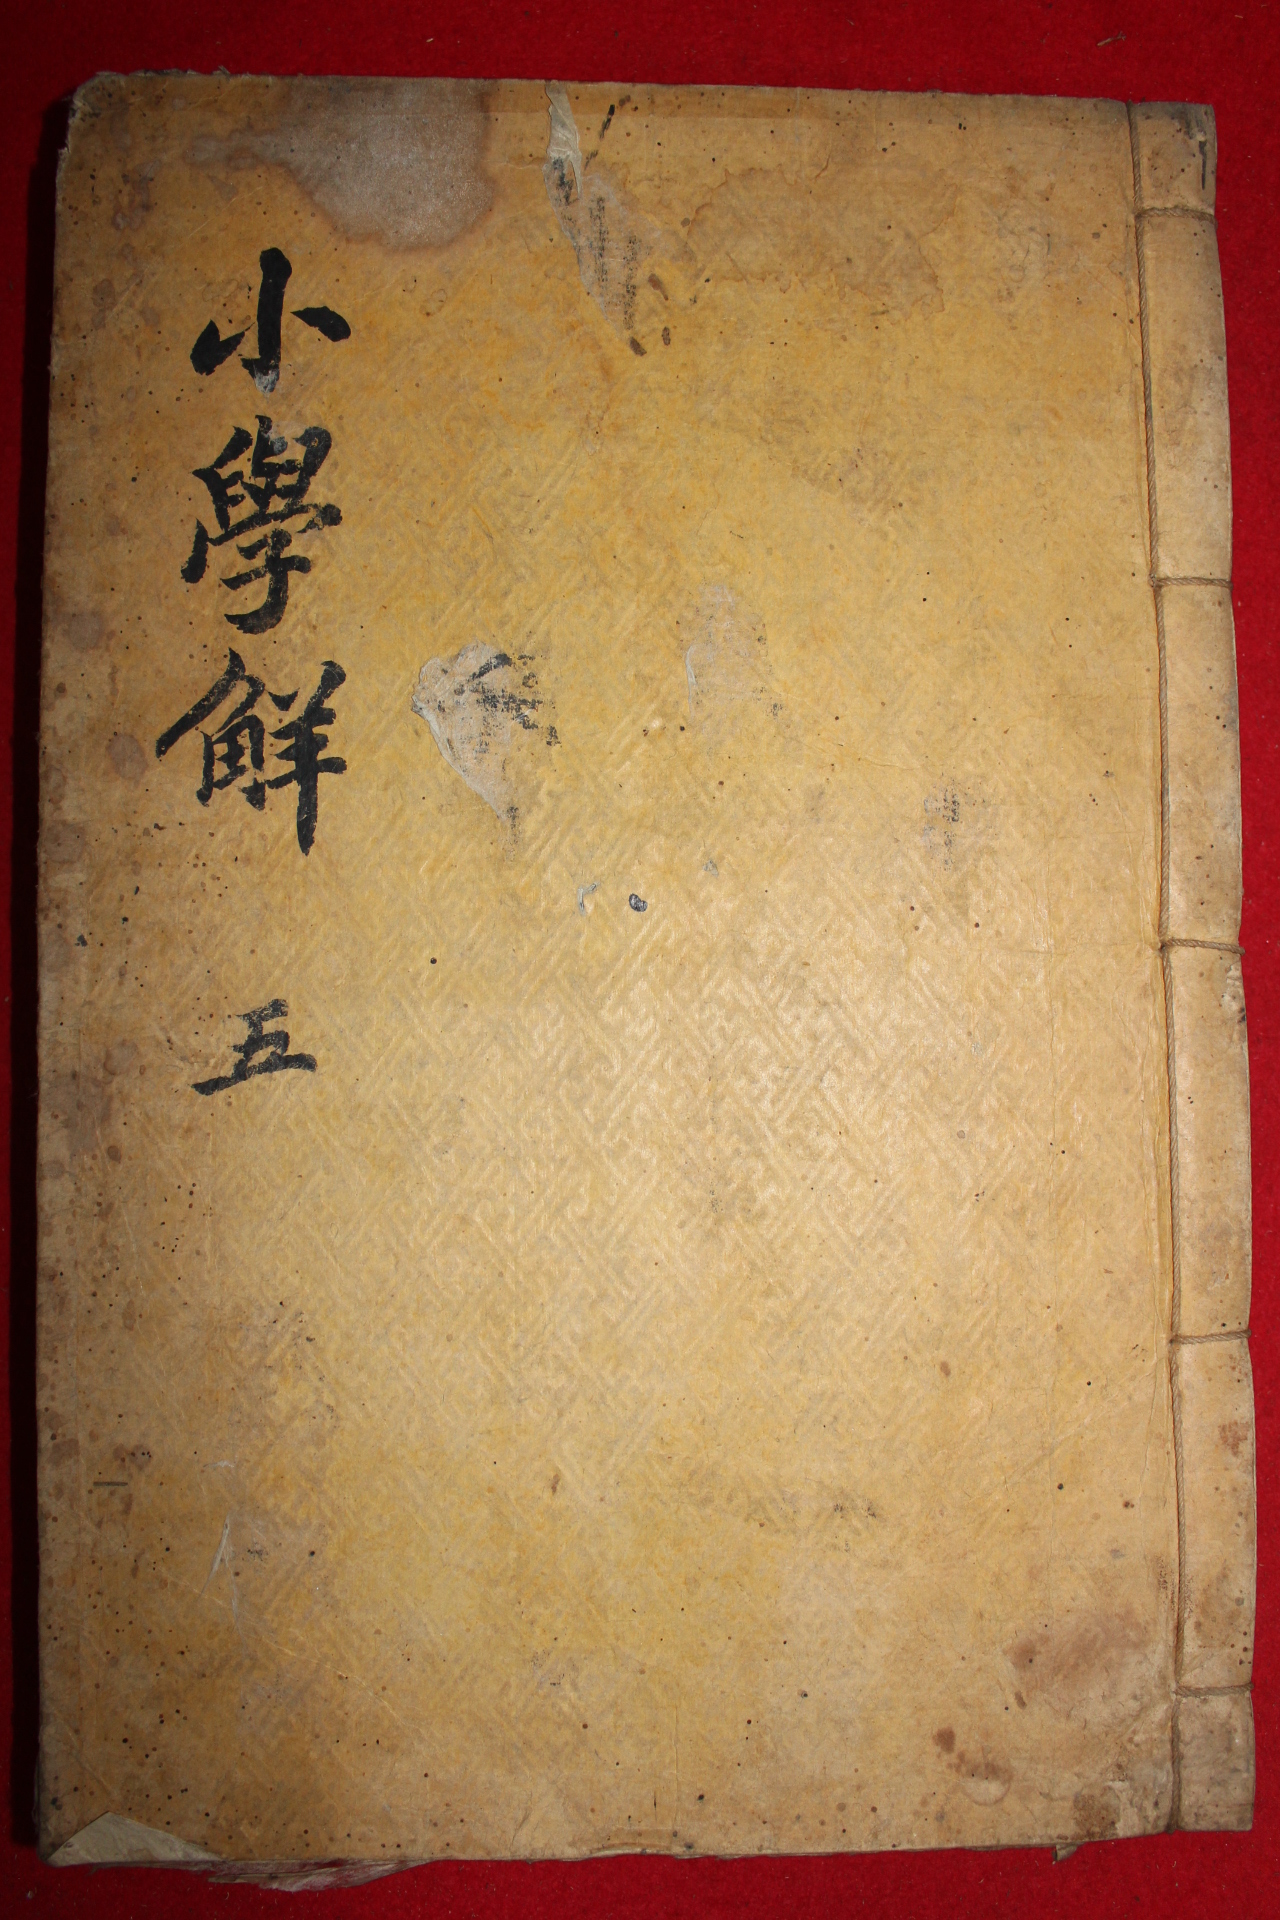 小學解 五